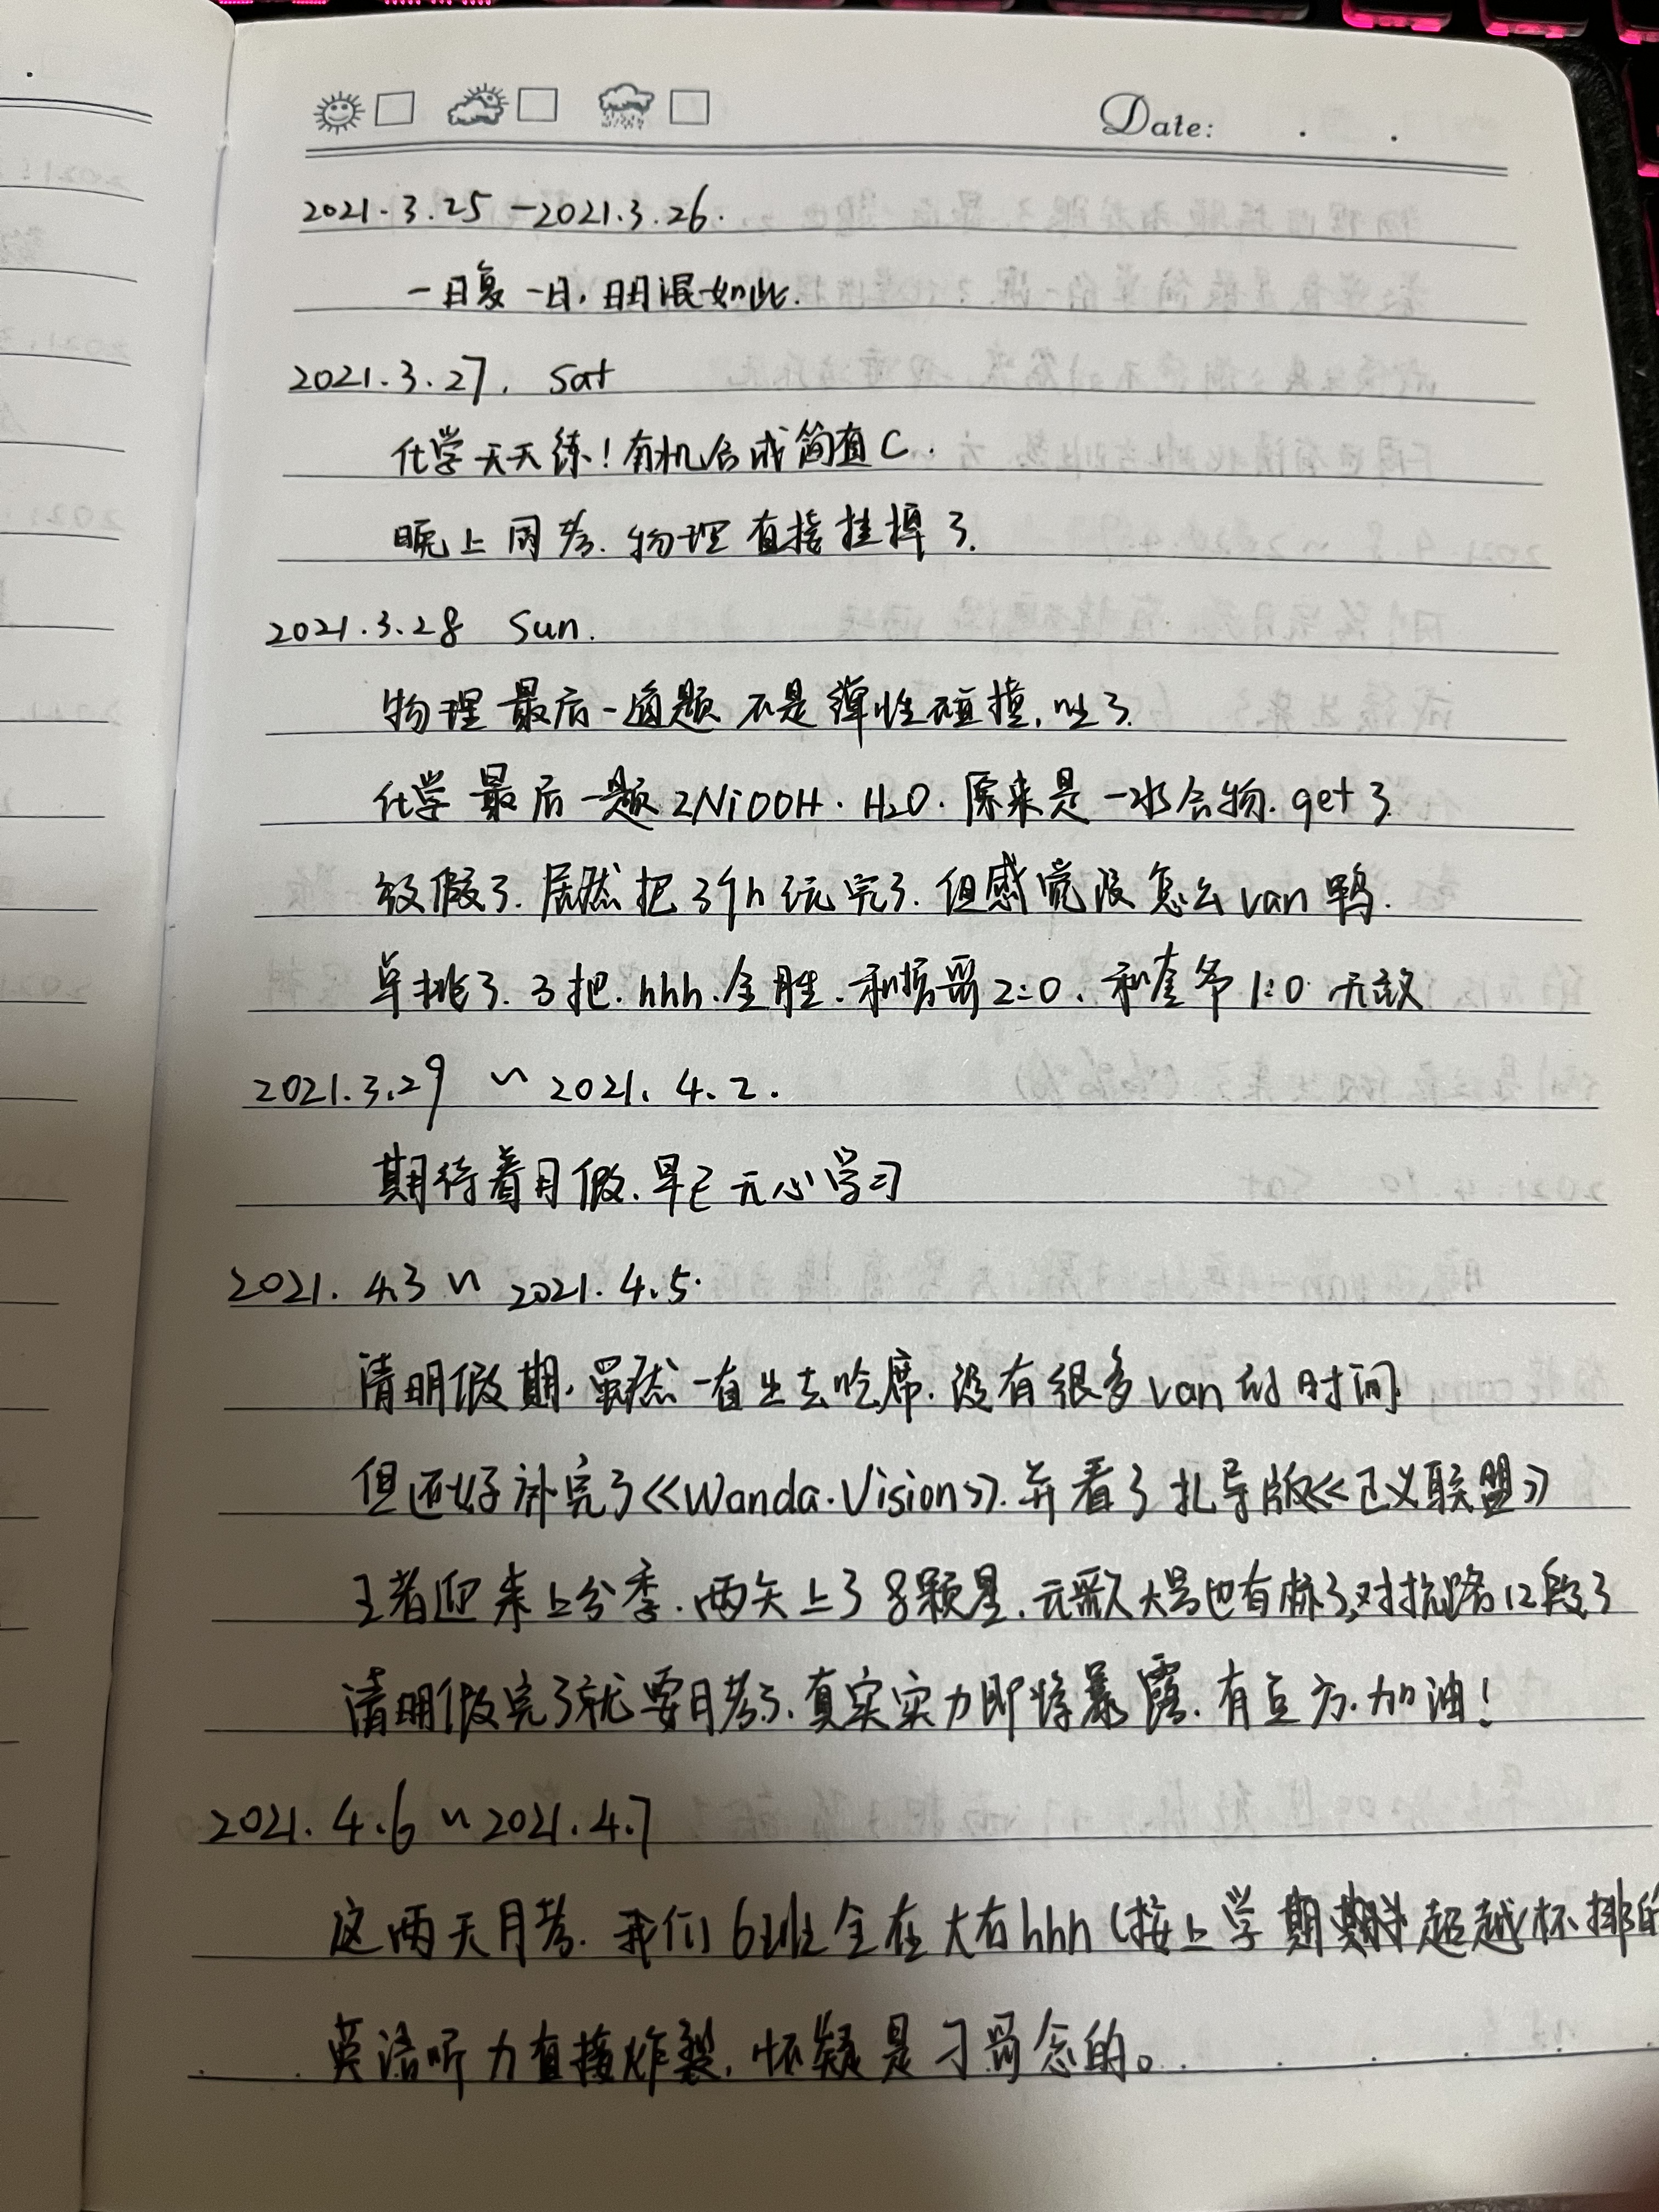 Date: . .
2021.3.25 - 2021.3.26.
一日复一日,日日泯如此.
2021.3.27. Sat
化学天天练!有机合成简直C.
晚上周考.物理直接挂掉了.
2021.3.28 Sun.
物理最后一道题不是弹性碰撞,吐了.
化学最后一题2NiOOH·H2O.原来是一水合物.get了.
放假了.居然把3个h玩完了.但感觉没怎么van鸭.
单挑了.3把.hhh.全胜.和哥2:0.和奎爷1:0.无敌
2021.3.29 ~ 2021.4.2.
期待着月假.早已无心学习
2021.4.3 ~ 2021.4.5.
清明假期.虽然一直出去吃席.没有很多van的时间.
但还好补完了《Wanda.Vision》.并看了扎导版《正义联盟》
王者迎来上分季.两天上了8颗星.元歌大号也有标了,对抗路12段了
清明假完了就要月考了.真实实力即将暴露.有点方.加油!
2021.4.6 ~ 2021.4.7
这两天月考.我们6班全在大右hhh(按上学期期半超越杯排的
英语听力直接炸裂,怀疑是刁哥念的。